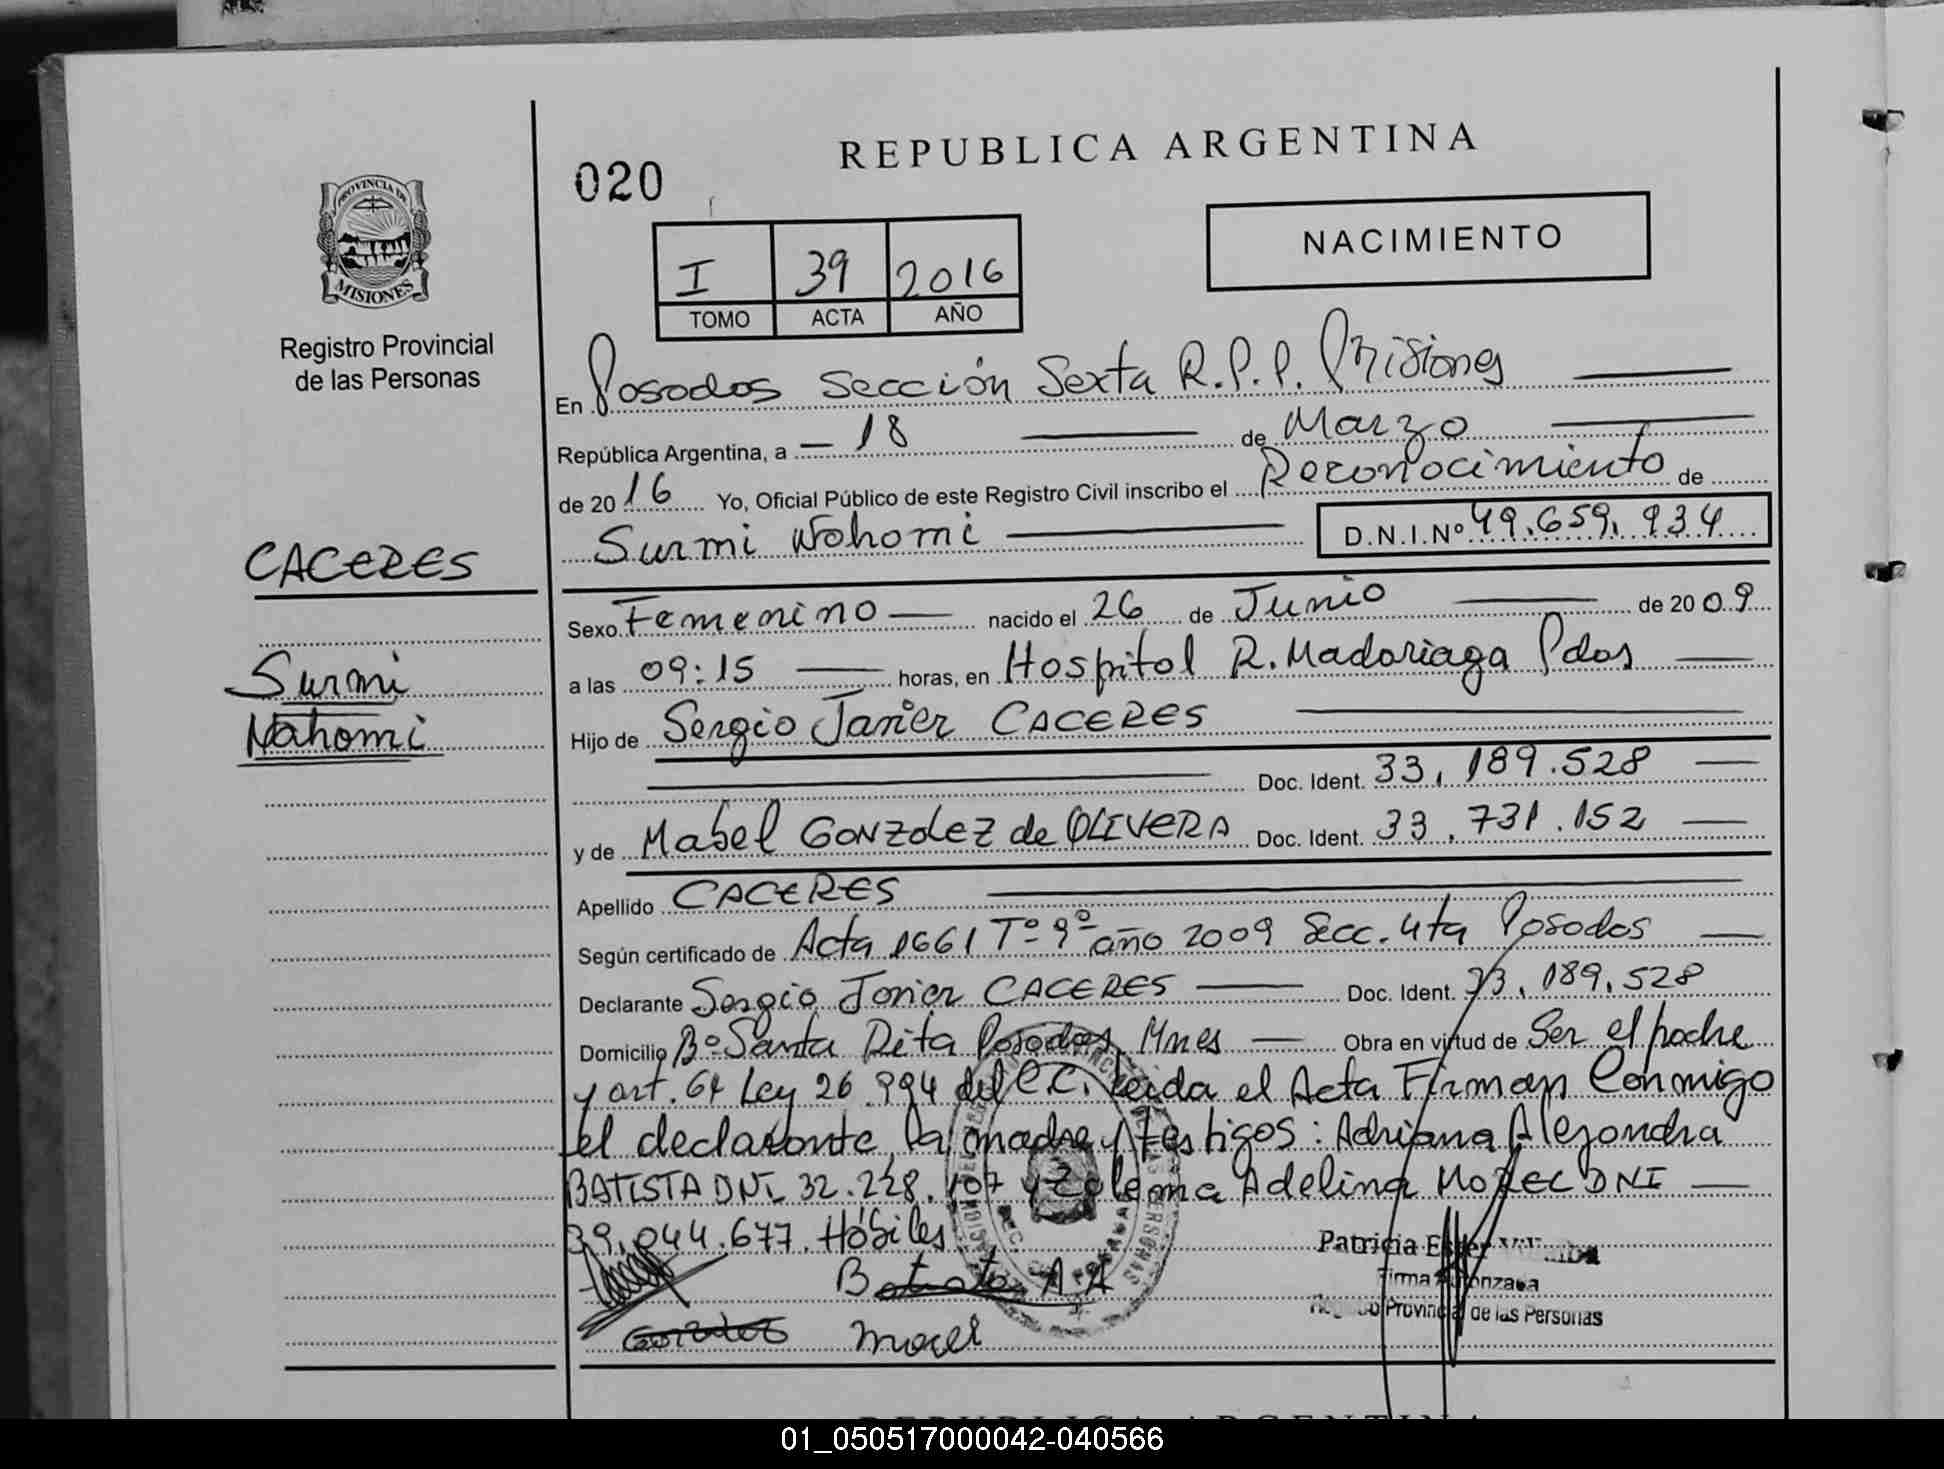 REPUBLICA ARGENTINA
020
PROVINCIA DE
MISIONES
Registro Provincial
de las Personas
NACIMIENTO
I 39 2016
TOMO ACTA AÑO
En Posadas Sección Sexta R.P.P. Misiones
República Argentina, a 18 de Marzo
de 2016 Yo, Oficial Público de este Registro Civil inscribo el Reconocimiento de
Surmi Nahomi D.N.I.Nº 49.659.934
CACERES
Surmi
Nahomi
Sexo Femenino nacido el 26 de Junio de 2009
a las 09:15 horas, en Hospital R. Madariaga Pdas
Hijo de Sergio Javier CACERES
Doc. Ident. 33.189.528
y de Mabel GONZALEZ de OLIVERA Doc. Ident. 33.731.152
Apellido CACERES
Según certificado de Acta 1661 Tº 9º año 2009 Secc. 4ta Posadas
Declarante Sergio Javier CACERES Doc. Ident. 33.189.528
Domicilio Bº Santa Rita Posadas Mnes Obra en virtud de Ser el padre
y art. 64 Ley 26.994 del C.C. Leida el Acta Firman Conmigo
el declarante, la madre y testigos: Adriana Alejandra
BATISTA DNI 32.228.107 y Adelina MOREL DNI
39.044.677. Hábiles
Patricia Ester
Firma Autorizada
Registro Provincial de las Personas
Batista A A
Gonzalez Morel
REPUBLICA ARGENTINA
01_050517000042-040566